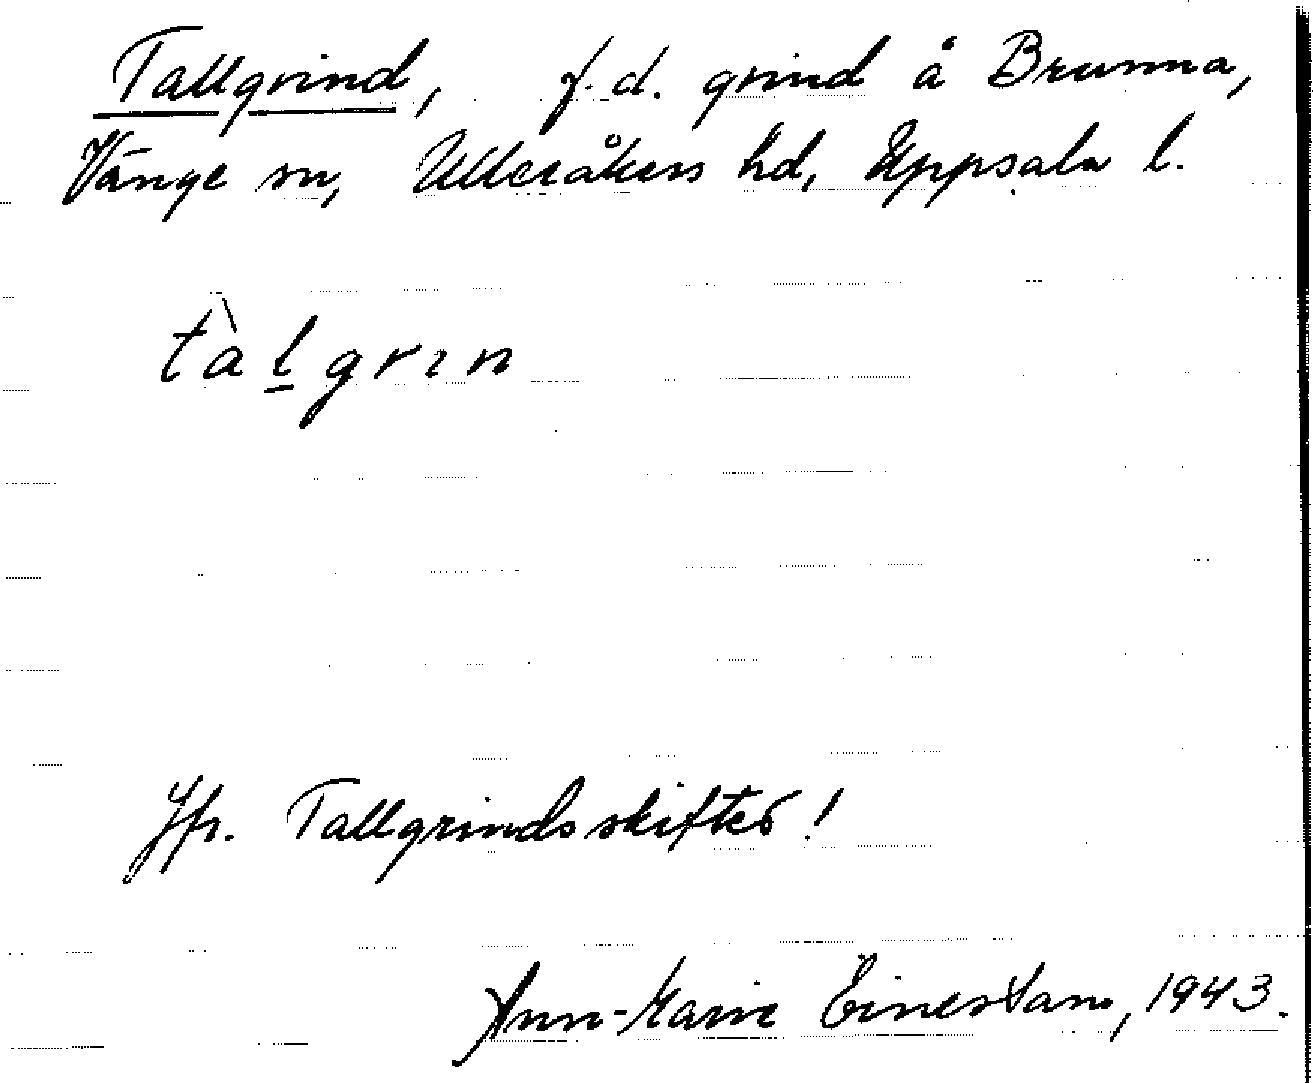 Tallgrind, f.d. grind å Brunna,
Vänge sn, Ulleråkers hd, Uppsala l.
tàlgrın
Jfr. Tallgrindsskiftet!
Ann-Marie 1943.